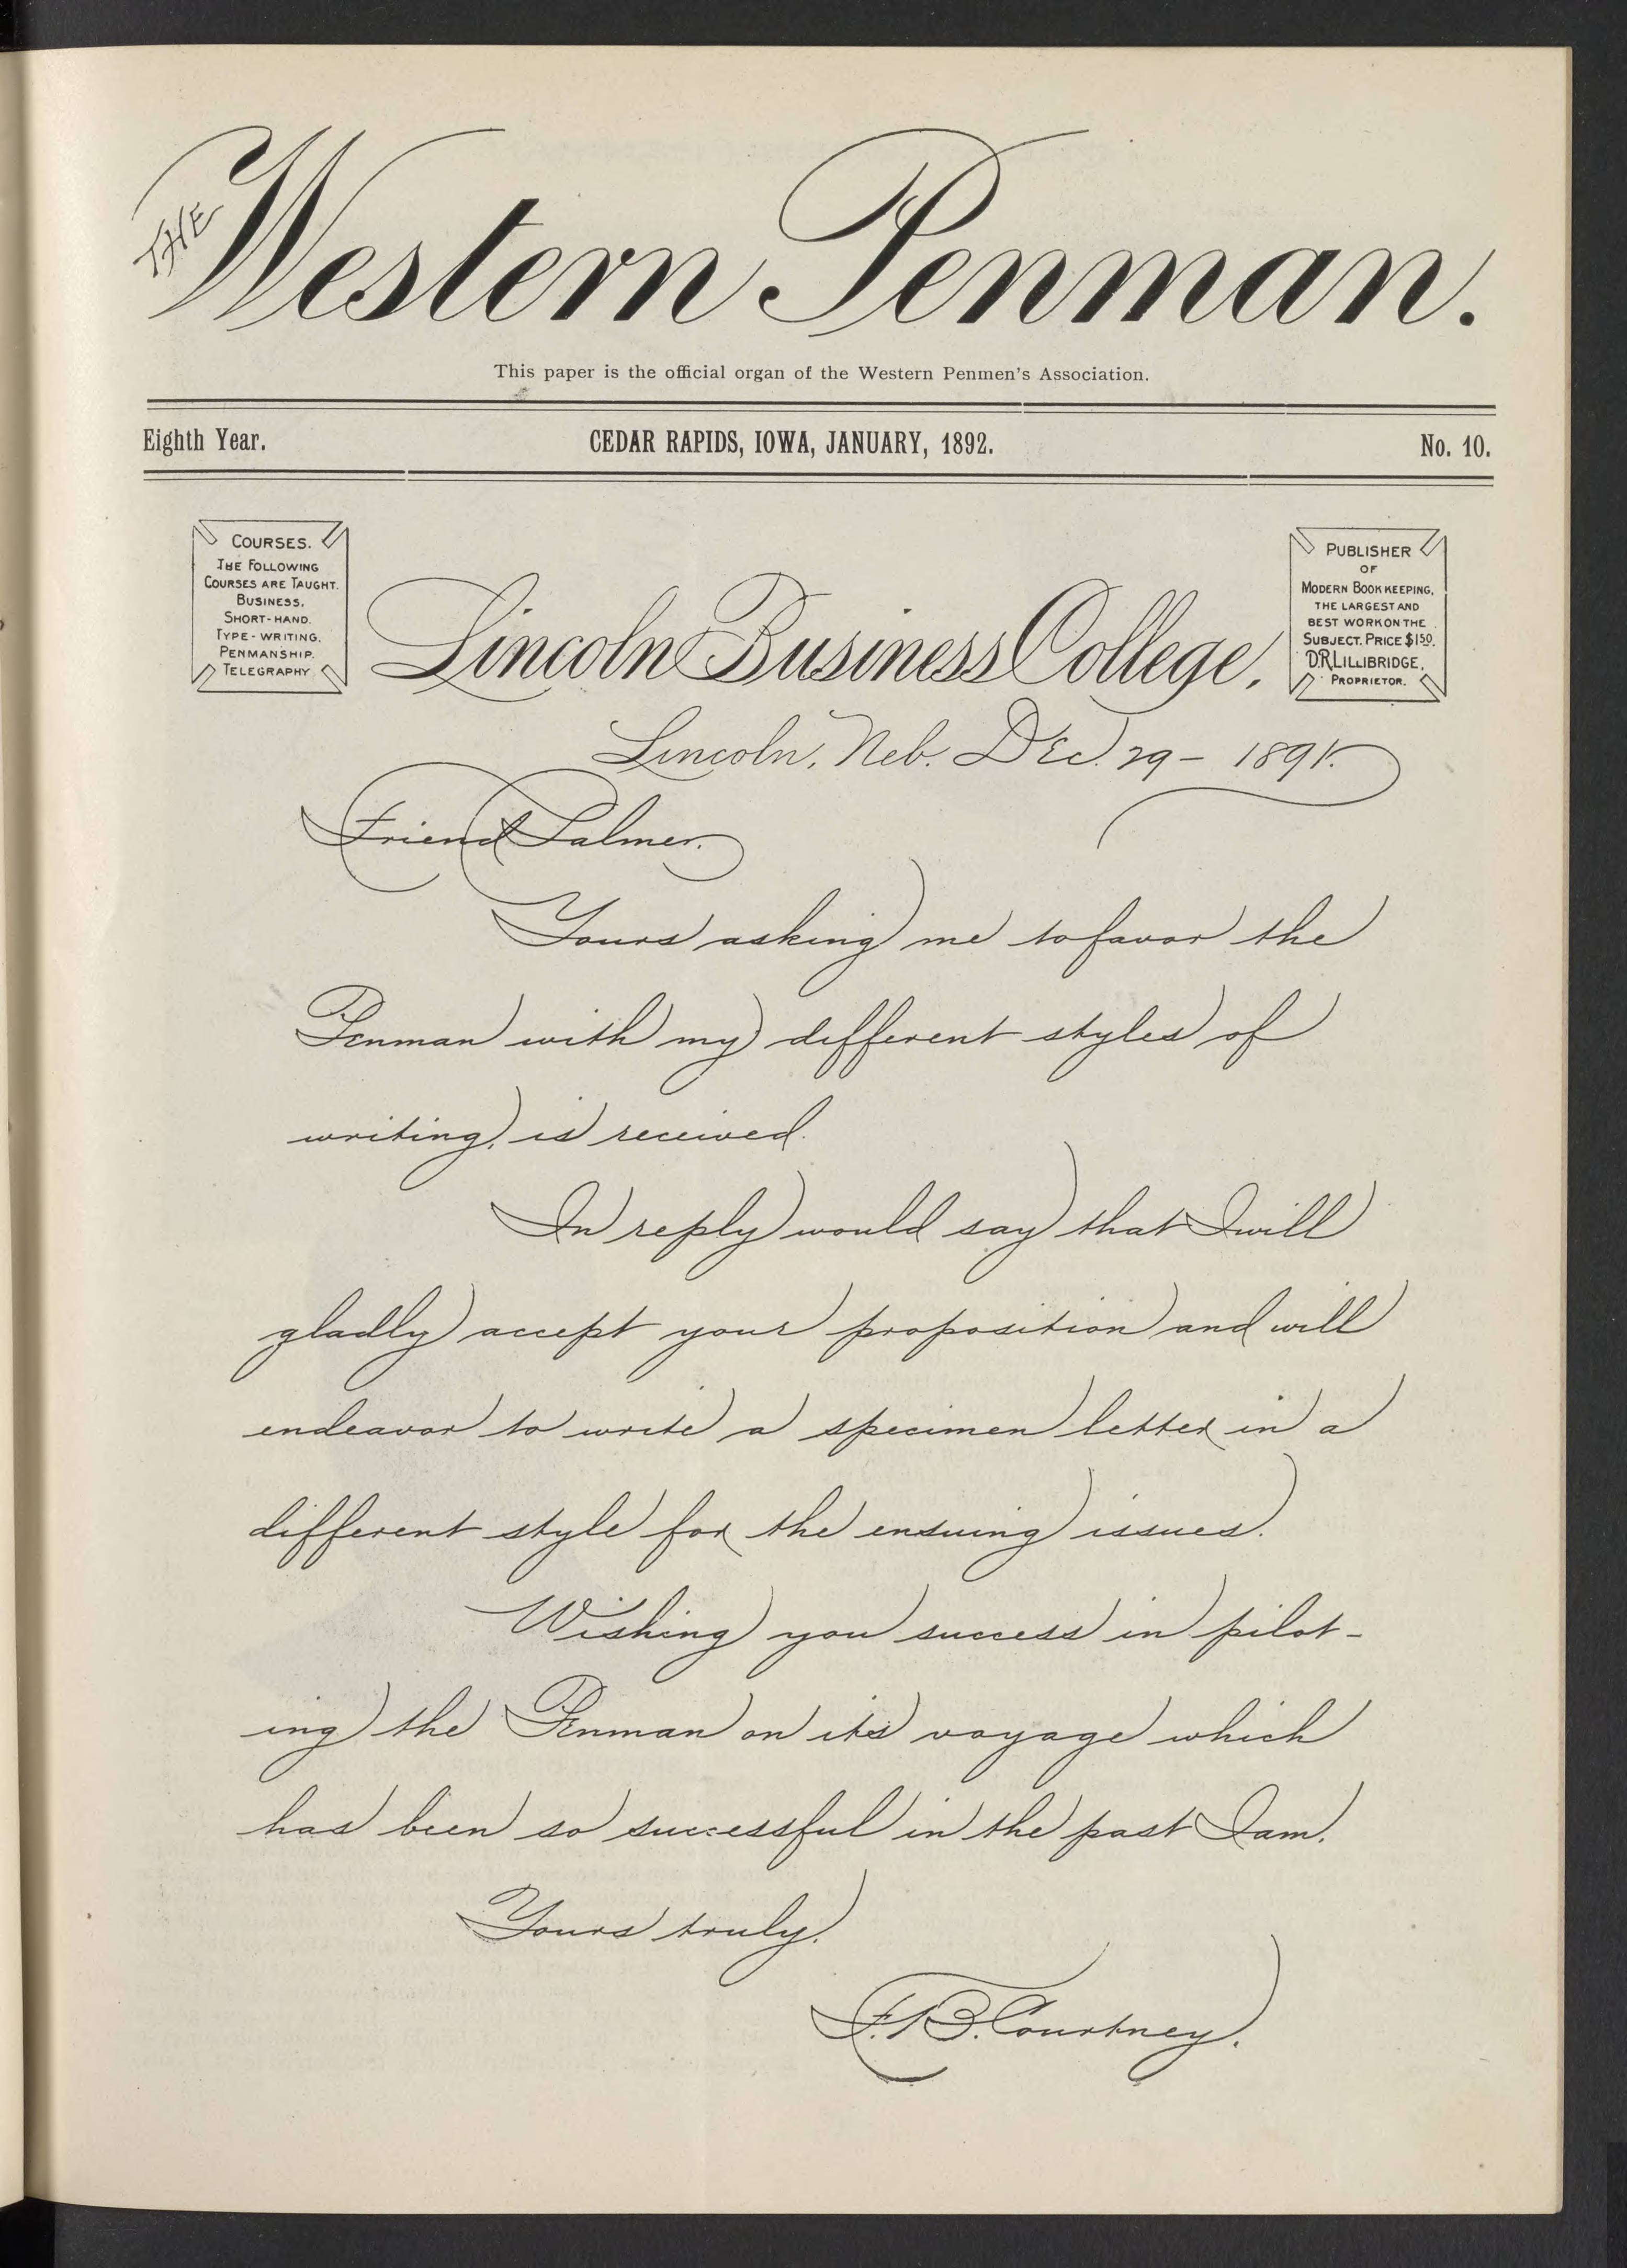 THE
Western Penman.
This paper is the official organ of the Western Penmen's Association.
Eighth Year. CEDAR RAPIDS, IOWA, JANUARY, 1892. No. 10.
COURSES.
THE FOLLOWING
COURSES ARE TAUGHT.
BUSINESS,
SHORT-HAND.
TYPE-WRITING.
PENMANSHIP.
TELEGRAPHY
Lincoln Business College,
PUBLISHER
OF
MODERN BOOKKEEPING,
THE LARGEST AND
BEST WORK ON THE
SUBJECT. PRICE $1.50.
D.R. LILLIBRIDGE,
PROPRIETOR.
Lincoln, Neb. Dec. 29 - 1891.
Friend Palmer.
Yours asking me to favor the
Penman with my different styles of
writing, is received.
In reply would say that I will
gladly accept your proposition and will
endeavor to write a specimen letter in a
different style for the ensuing issues.
Wishing you success in pilot-
ing the Penman on its voyage which
has been so successful in the past I am.
Yours truly.
F.B. Courtney.